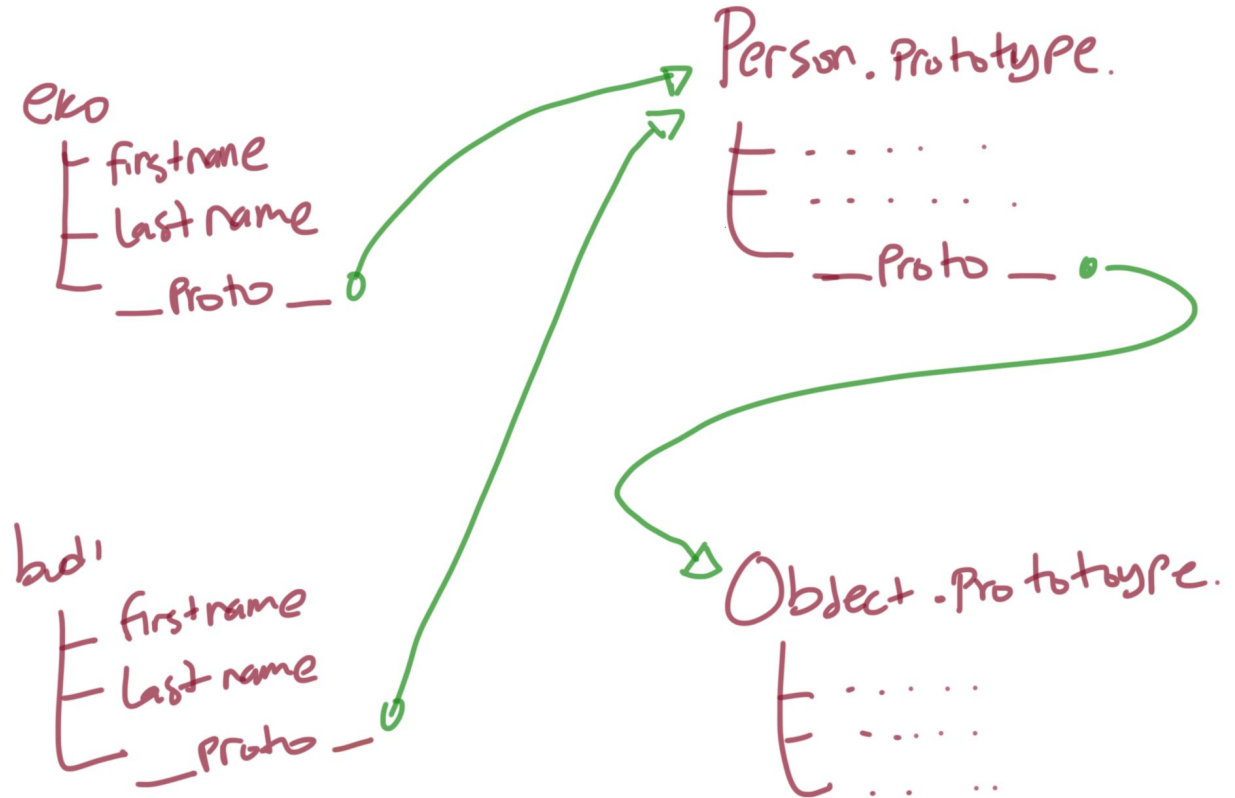 eko
firstname
lastname
__proto__
budi
firstname
lastname
__proto__
Person.Prototype.
. . . . .
. . . . . .
__proto__
Object.Prototoype.
. . . . .
. . . . .
. . . .